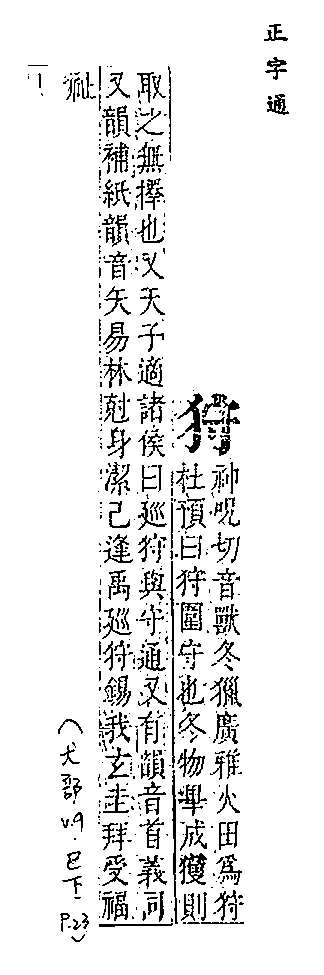 正字通
狩
神呪切音獸冬獵廣雅火田爲狩
杜預曰狩圍守也冬物畢成獲則
取之無擇也又天子適諸侯曰廵狩與守通又有韻音首義同
又韻補紙韻音矢易林尅身潔己逢禹廵狩錫我玄圭拜受福
祉
(犬部 v.9.巳下 P.23)